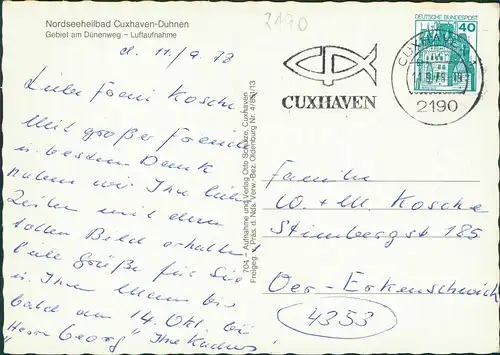 Nordseeheilbad Cuxhaven-Duhnen
Gebiet am Dünenweg – Luftaufnahme
2190
d. 11/9.78
Liebe Frau Kosche
Mit großer Freude
u. bestem Dank
haben wir Ihre lieben
Zeilen mit dem
tollen Bild erhalten!
Liebe Grüße für Sie
u. Ihren Mann bis
bald am 14. Okt. bei
"Herrn Georg" Ihre
704 – Aufnahme und Verlag Otto Schulze, Cuxhaven
Freigeg. d. Präs. d. Nds. Verw.-Bez. Oldenburg Nr.
CUXHAVEN
DEUTSCHE BUNDESPOST
40
CUXHAVEN
2190
Familie
W. + M. Kosche
Stimbergst 185
Oer-Erkenschwick
4353